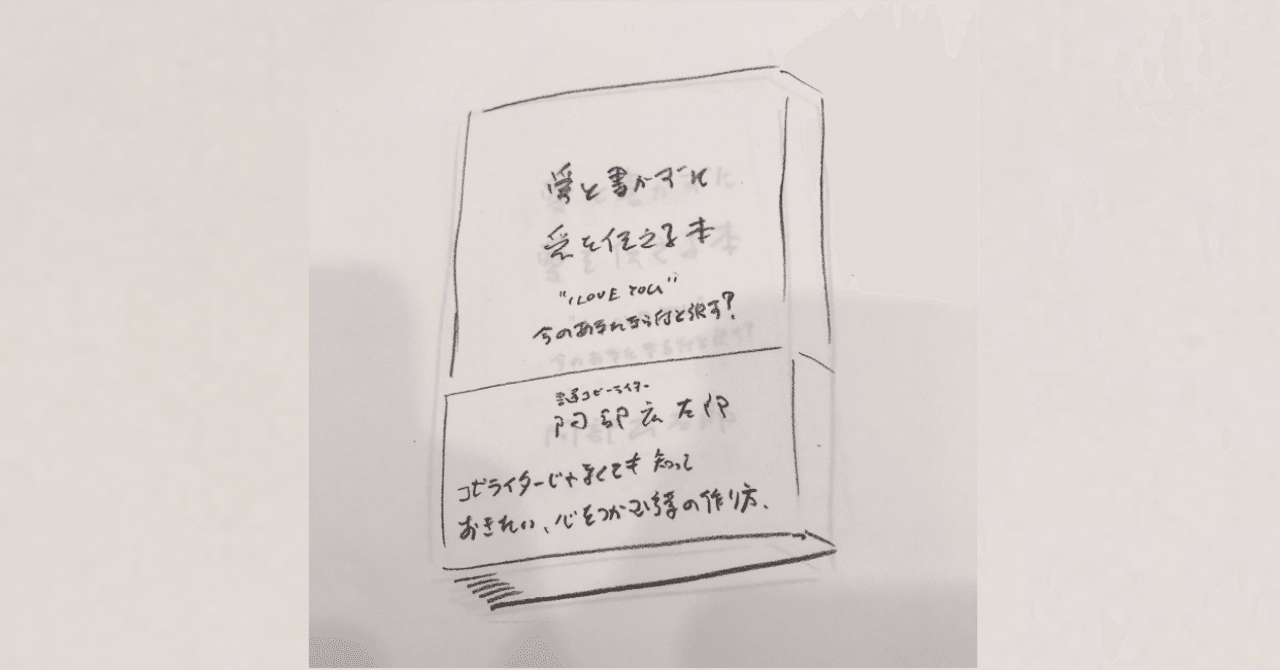 愛と書かずに
愛を伝える本
"I LOVE YOU"
今のあなたなら何と訳す?
コピーライター
阿部広太郎
コピライターじゃなくても知って
おきたい、心をつかむの作り方.